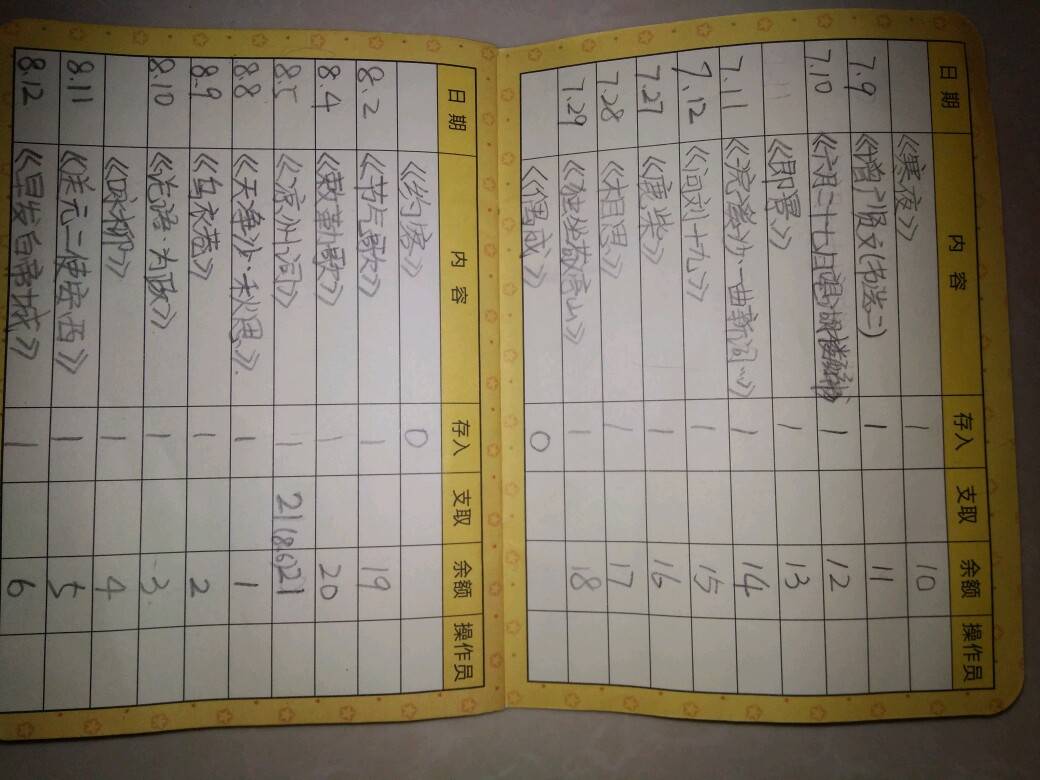 日期 内容 存入 支取 余额 操作员
《寒夜》 1 10
7.9 《增广贤文(节选二) 1 11
7.10 《六月二十七日望湖楼醉书 1 12
《即景》 1 13
7.11 《浣溪沙·一曲新词…》 1 14
7.12 《问刘十九》 1 15
7.27 《鹿柴》 1 16
7.28 《相思》 1 17
7.29 《独坐敬亭山》 1 18
《偶成》 0
日期 内容 存入 支取 余额 操作员
《约客》 0
8.2 《节气歌》 1 19
8.4 《数九歌》 1 20
8.5 《凉州词》 1 21(8.6) 21
8.8 《天净沙·秋思》. 1 1
8.9 《乌衣巷》 1 2
8.10 《论语·为政》. 1 3
《咏柳》 1 4
8.11 《送元二使安西》 1 5
8.12 《早发白帝城》 1 6